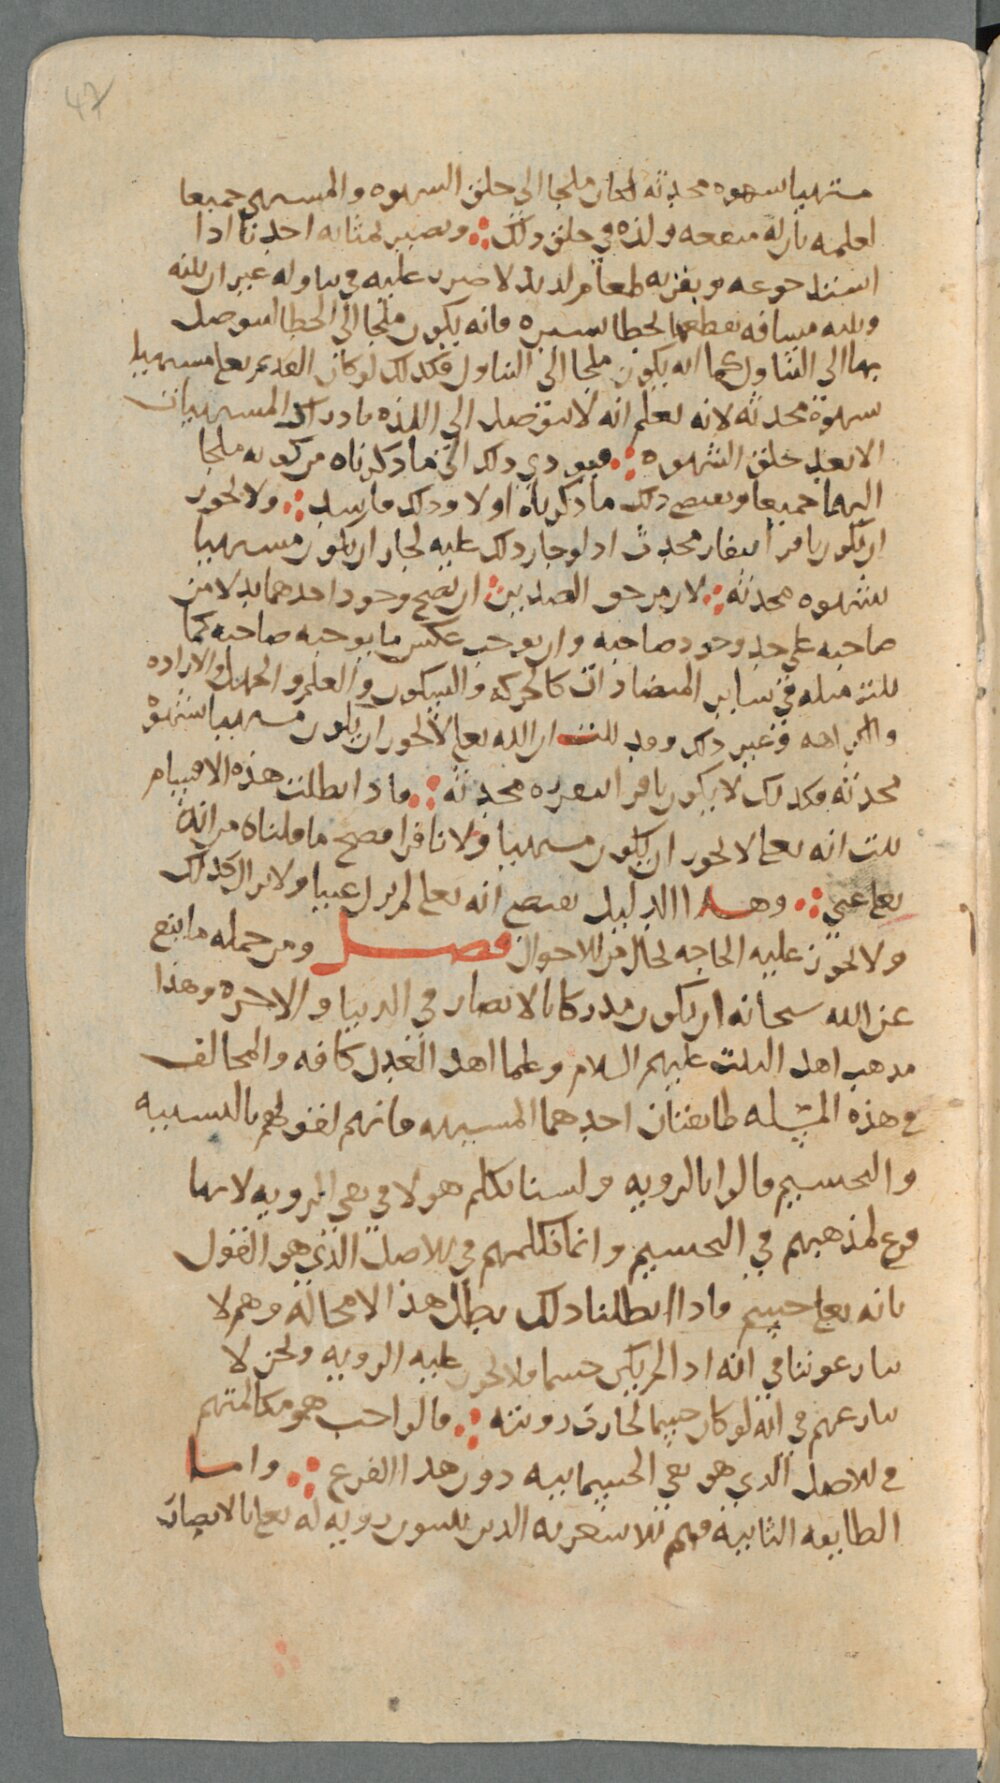 47
مشتهيا بشهوة محدثة لكان ملجا الى خلق الشهوة والمشتهى جميعا
لعلمه بان له منفعه ولذه في خلق ذلك ∴ ويصير بمثابه احدنا اذا
اشتد جوعه وبقربه طعام لذيذ لا ضرر عليه في تناوله غير ان بينه
وبينه مسافه يقطعها بخطا يسيره فانه يكون ملجا الى الخطا ليتوصل
بها الى التناول كما انه يكون ملجا الى التناول فكذلك لو كان القديم تعالى مشتهيا
بشهوة محدثه لانه يعلم انه لا يتوصل الى اللذه بادراك المشتهيات
الا بعد خلق الشهوه ∴ فيودي ذلك الى ما ذكرناه من كونه ملجا
اليهما جميعا ويقتضي ذلك ما ذكرناه اولا وذلك فاسد ∴ ولا يجوز
ان يكون نافرا بنفار محدث اذ لو جاز ذلك عليه لجاز ان يكون مشتهيا
بشهوه محدثه ∴ لان من حق الضدين ∴ ان يصح وجود احدهما بدلا من
صاحبه على حد وجود صاحبه وان يوجب عكس ما يوجبه صاحبه كما
يثبت مثله في ساير المتضادات كالحركه والسكون والعلم والجهل والاراده
والكراهه وغير ذلك وقد ثبت ان الله تعالى لا يجوز ان يكون مشتهيا بشهوة
محدثه فكذلك لا يكون نافرا بنفره محدثه ∴ فاذا بطلت هذه الاقسام
ثبت انه تعالى لا يجوز ان يكون مشتهيا ولا نافرا فصح ما قلناه من انه
تعالى غني ∴ وهذا الدليل يقتضي انه تعالى لم يزل غنيا ولا يزال كذلك
ولا يجوز عليه الحاجه بحال من الاحوال فصل ومن جمله ما ينفى
عن الله سبحانه ان يكون مدركا بالابصار في الدنيا والاخره وهذا
مذهب اهل البيت عليهم السلام وعلما اهل العدل كافه والمخالف
في هذه المسله طايفتان احدهما المشبهه فانهم لقولهم بالتشبيه
والتجسيم قالوا بالرويه ولسنا نكلم هولا في نفي الرويه لانها
فرع لمذهبهم في التجسيم وانما نكلمهم في الاصل الذي هو القول
بانه تعالى جسم فاذا ابطلنا ذلك بطل هذا لا محاله وهم لا
ينازعوننا في انه اذا لم يكن جسما فلا يجوز عليه الرويه ونحن لا
ننازعهم في انه لو كان جسما لجازت رويته ∴ فالواجب هو مكالمتهم
في الاصل الذي هو نفي الجسمانيه دون هذا الفرع ∴ واما
الطايفه الثانيه فهم الاشعريه الذين يثبتون رويه له تعالى بالابصار